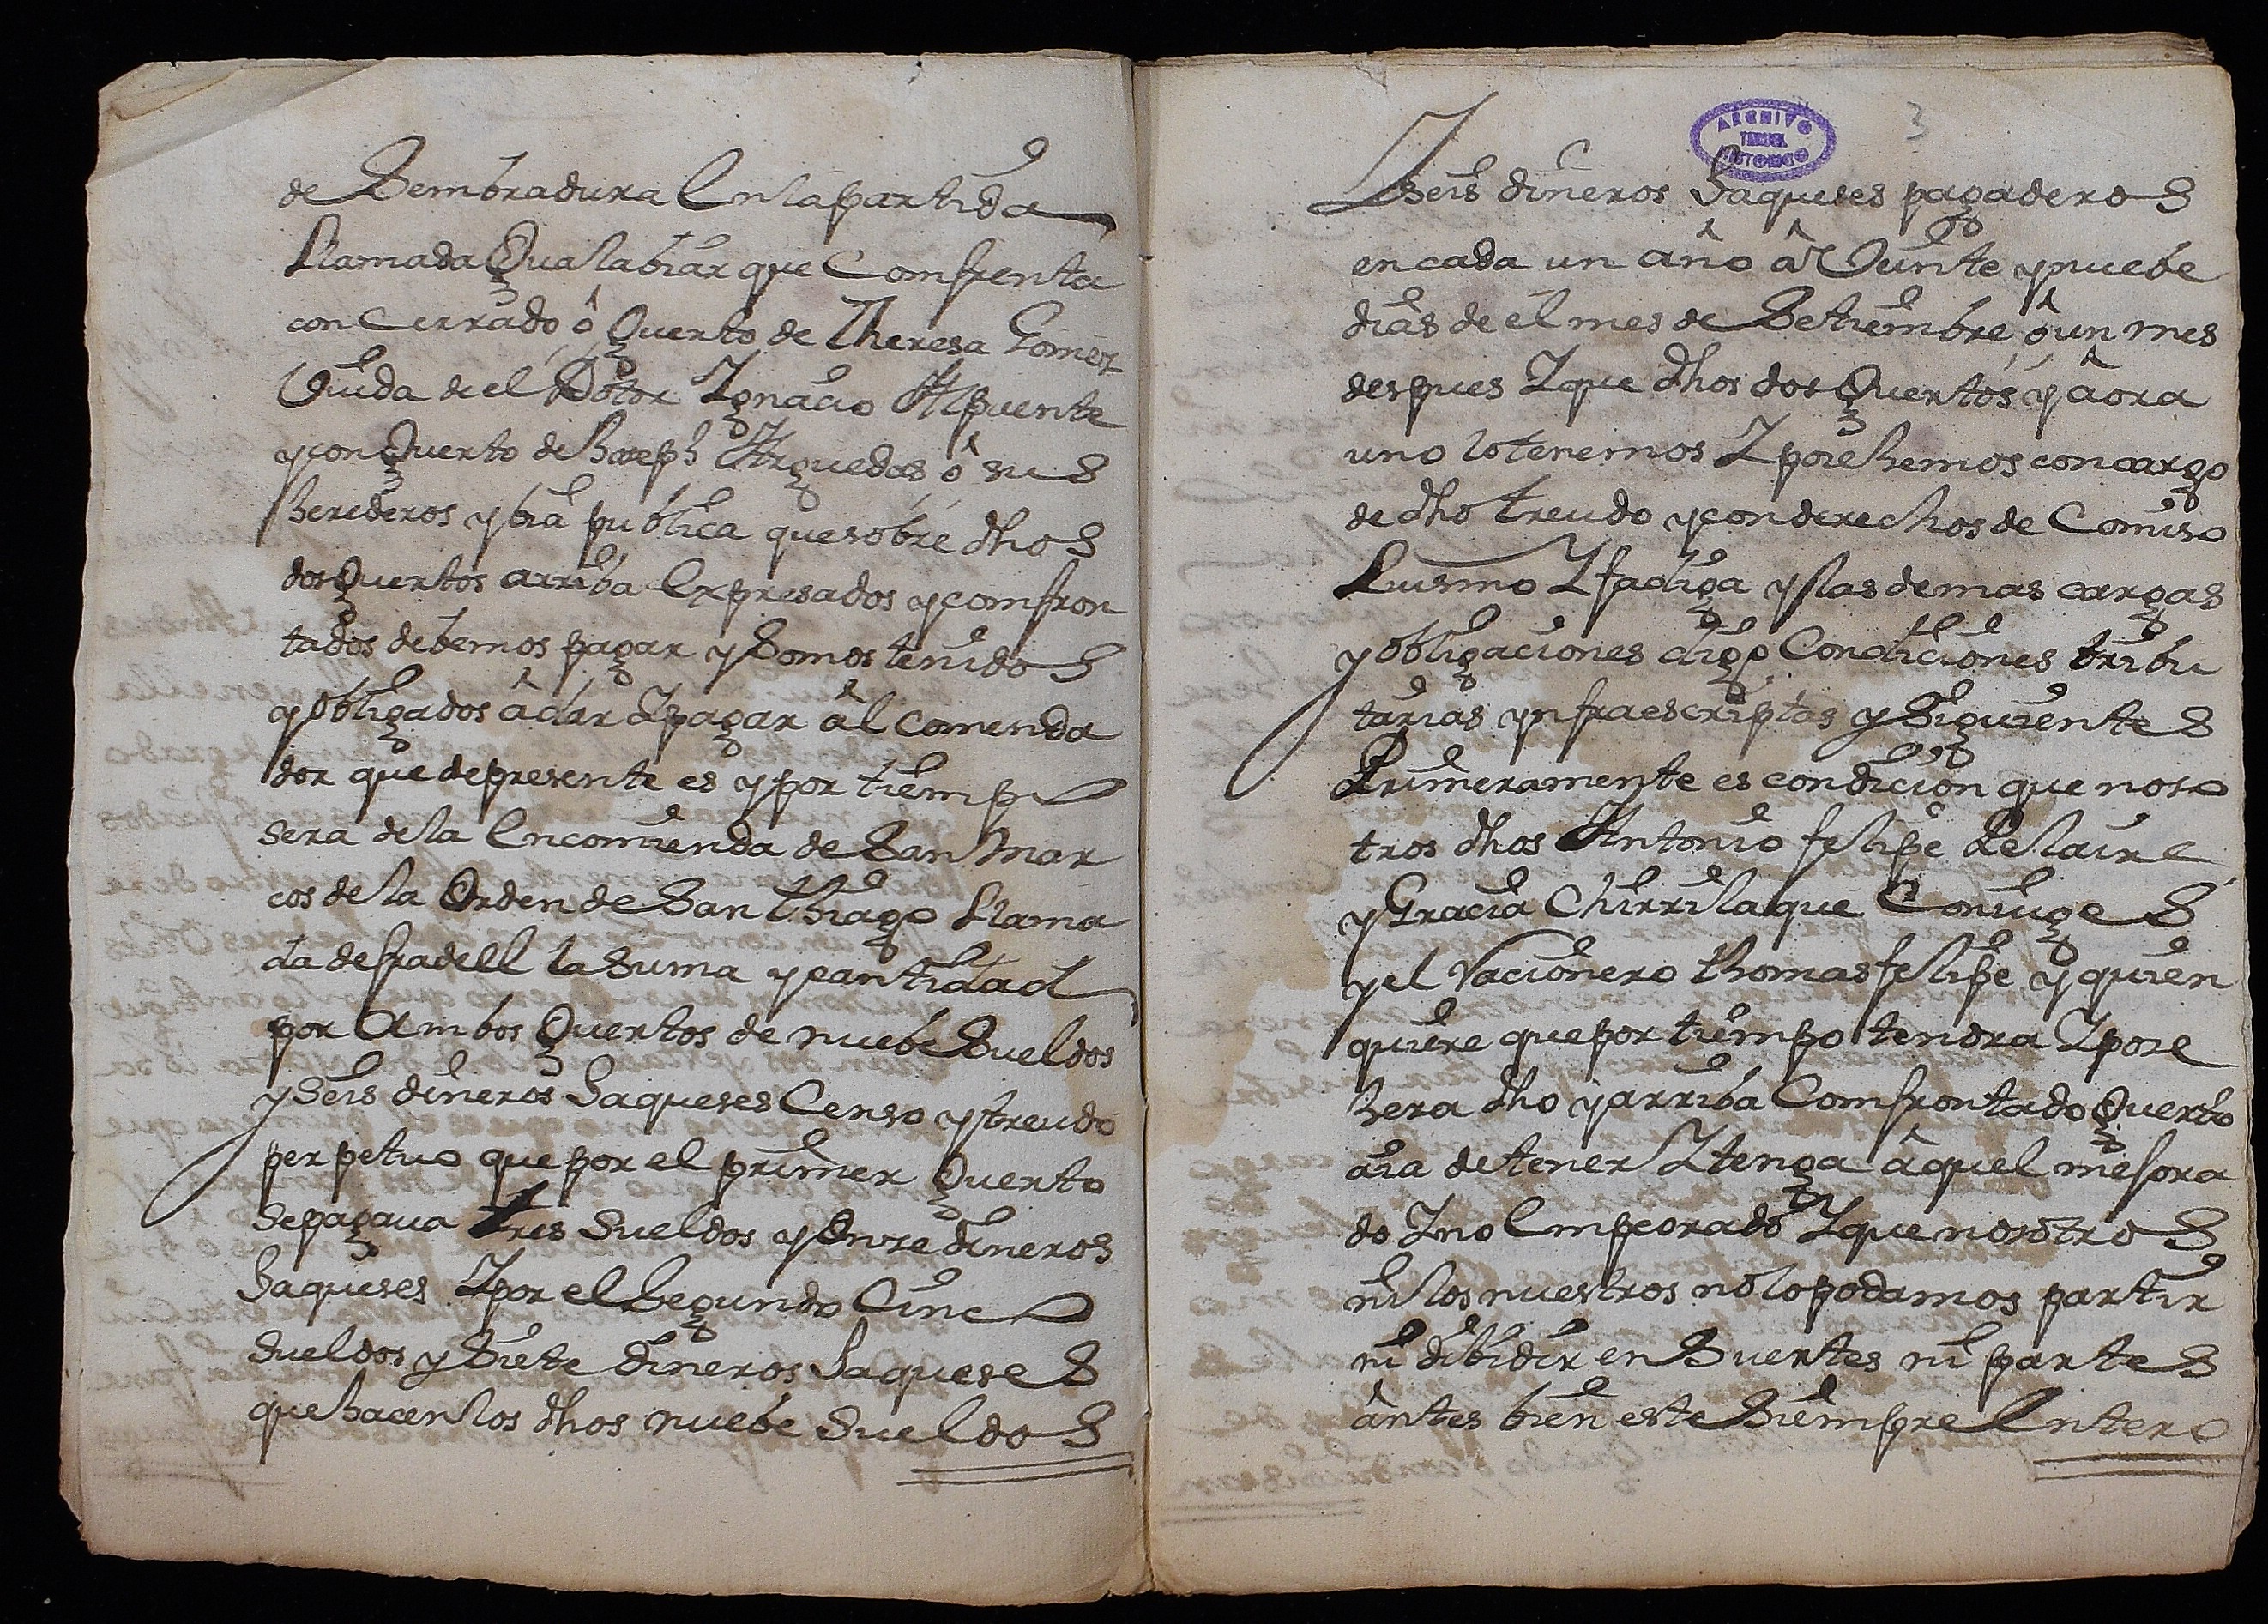 de Sembradura En la partida
Llamada Gualabiar que Comfrenta
con Cerrado ô Guerto de Theresa Gomez
Viuda de el Dotor Ignacio Alpuente
y con Guerto de Joseph Arguedas ô sus
herederos y bia publica que sobre dhos
dos Guertos arriba Expresados y comfron
tados debemos pagar y Somos tenidos
y obligados â dar Y pagar âl comenda
dor que de presente es y por tiempo
sera de la Encomienda de San Mar
cos de la Orden de San Thiago Llama
da de fradell la suma y cantidad
por Ambos Guertos de nuebe Sueldos
y Seis dineros Jaqueses Censo y treudo
perpetuo que por el primer Guerto
se pagaua tres Sueldos y Onze dineros
Jaqueses Y por el Segundo Cinco
Sueldos y Siete dineros Jaqueses
que hacen los dhos nuebe Sueldos
3
ARCHIVO
TERUEL
HISTORICO
Y seis dineros Jaqueses pagaderos
en cada un año â Veinte y nuebe
dias de el mes de Setiembre ô un mes
despues Y que dhos dos Guertos y âora
uno lo tenemos Y posehemos con cargo
de dho treudo y con derechos de Comiso
Luismo Y fadiga y las demas cargas
y obligaciones digo Condiciones tribu
tarias ynfraescriptas y Siguientes
Primeramente es condicion que noso
tros dhos Antonio felipe Pelaire
y Gracia Chirrilaque Coniuges
y el Racionero Thomas felipe y quien
quiere que por tiempo tendra Y pose
hera dho y arriba Comfrontado Guerto
aia de tener Y tenga âquel mejora
do Y no Empeorado Y que nosotros
ni los nuestros no lo podamos partir
ni dibidir en Suertes ni partes
ântes bien este Siempre Entero